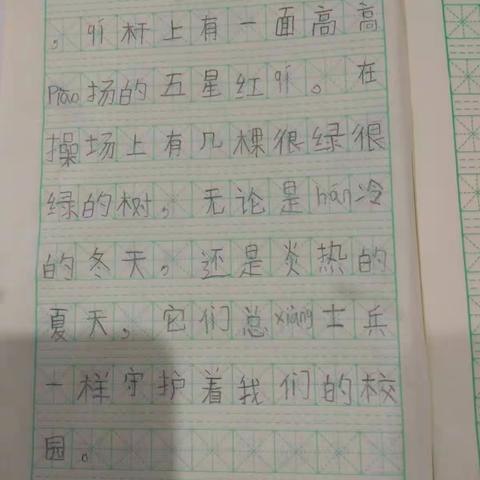 ，qí杆上有一面高高
piāo扬的五星红qí。在
操场上有几棵很绿很
绿的树，无论是hán冷
的冬天，还是炎热的
夏天，它们总xiàng士兵
一样守护着我们的校
园。